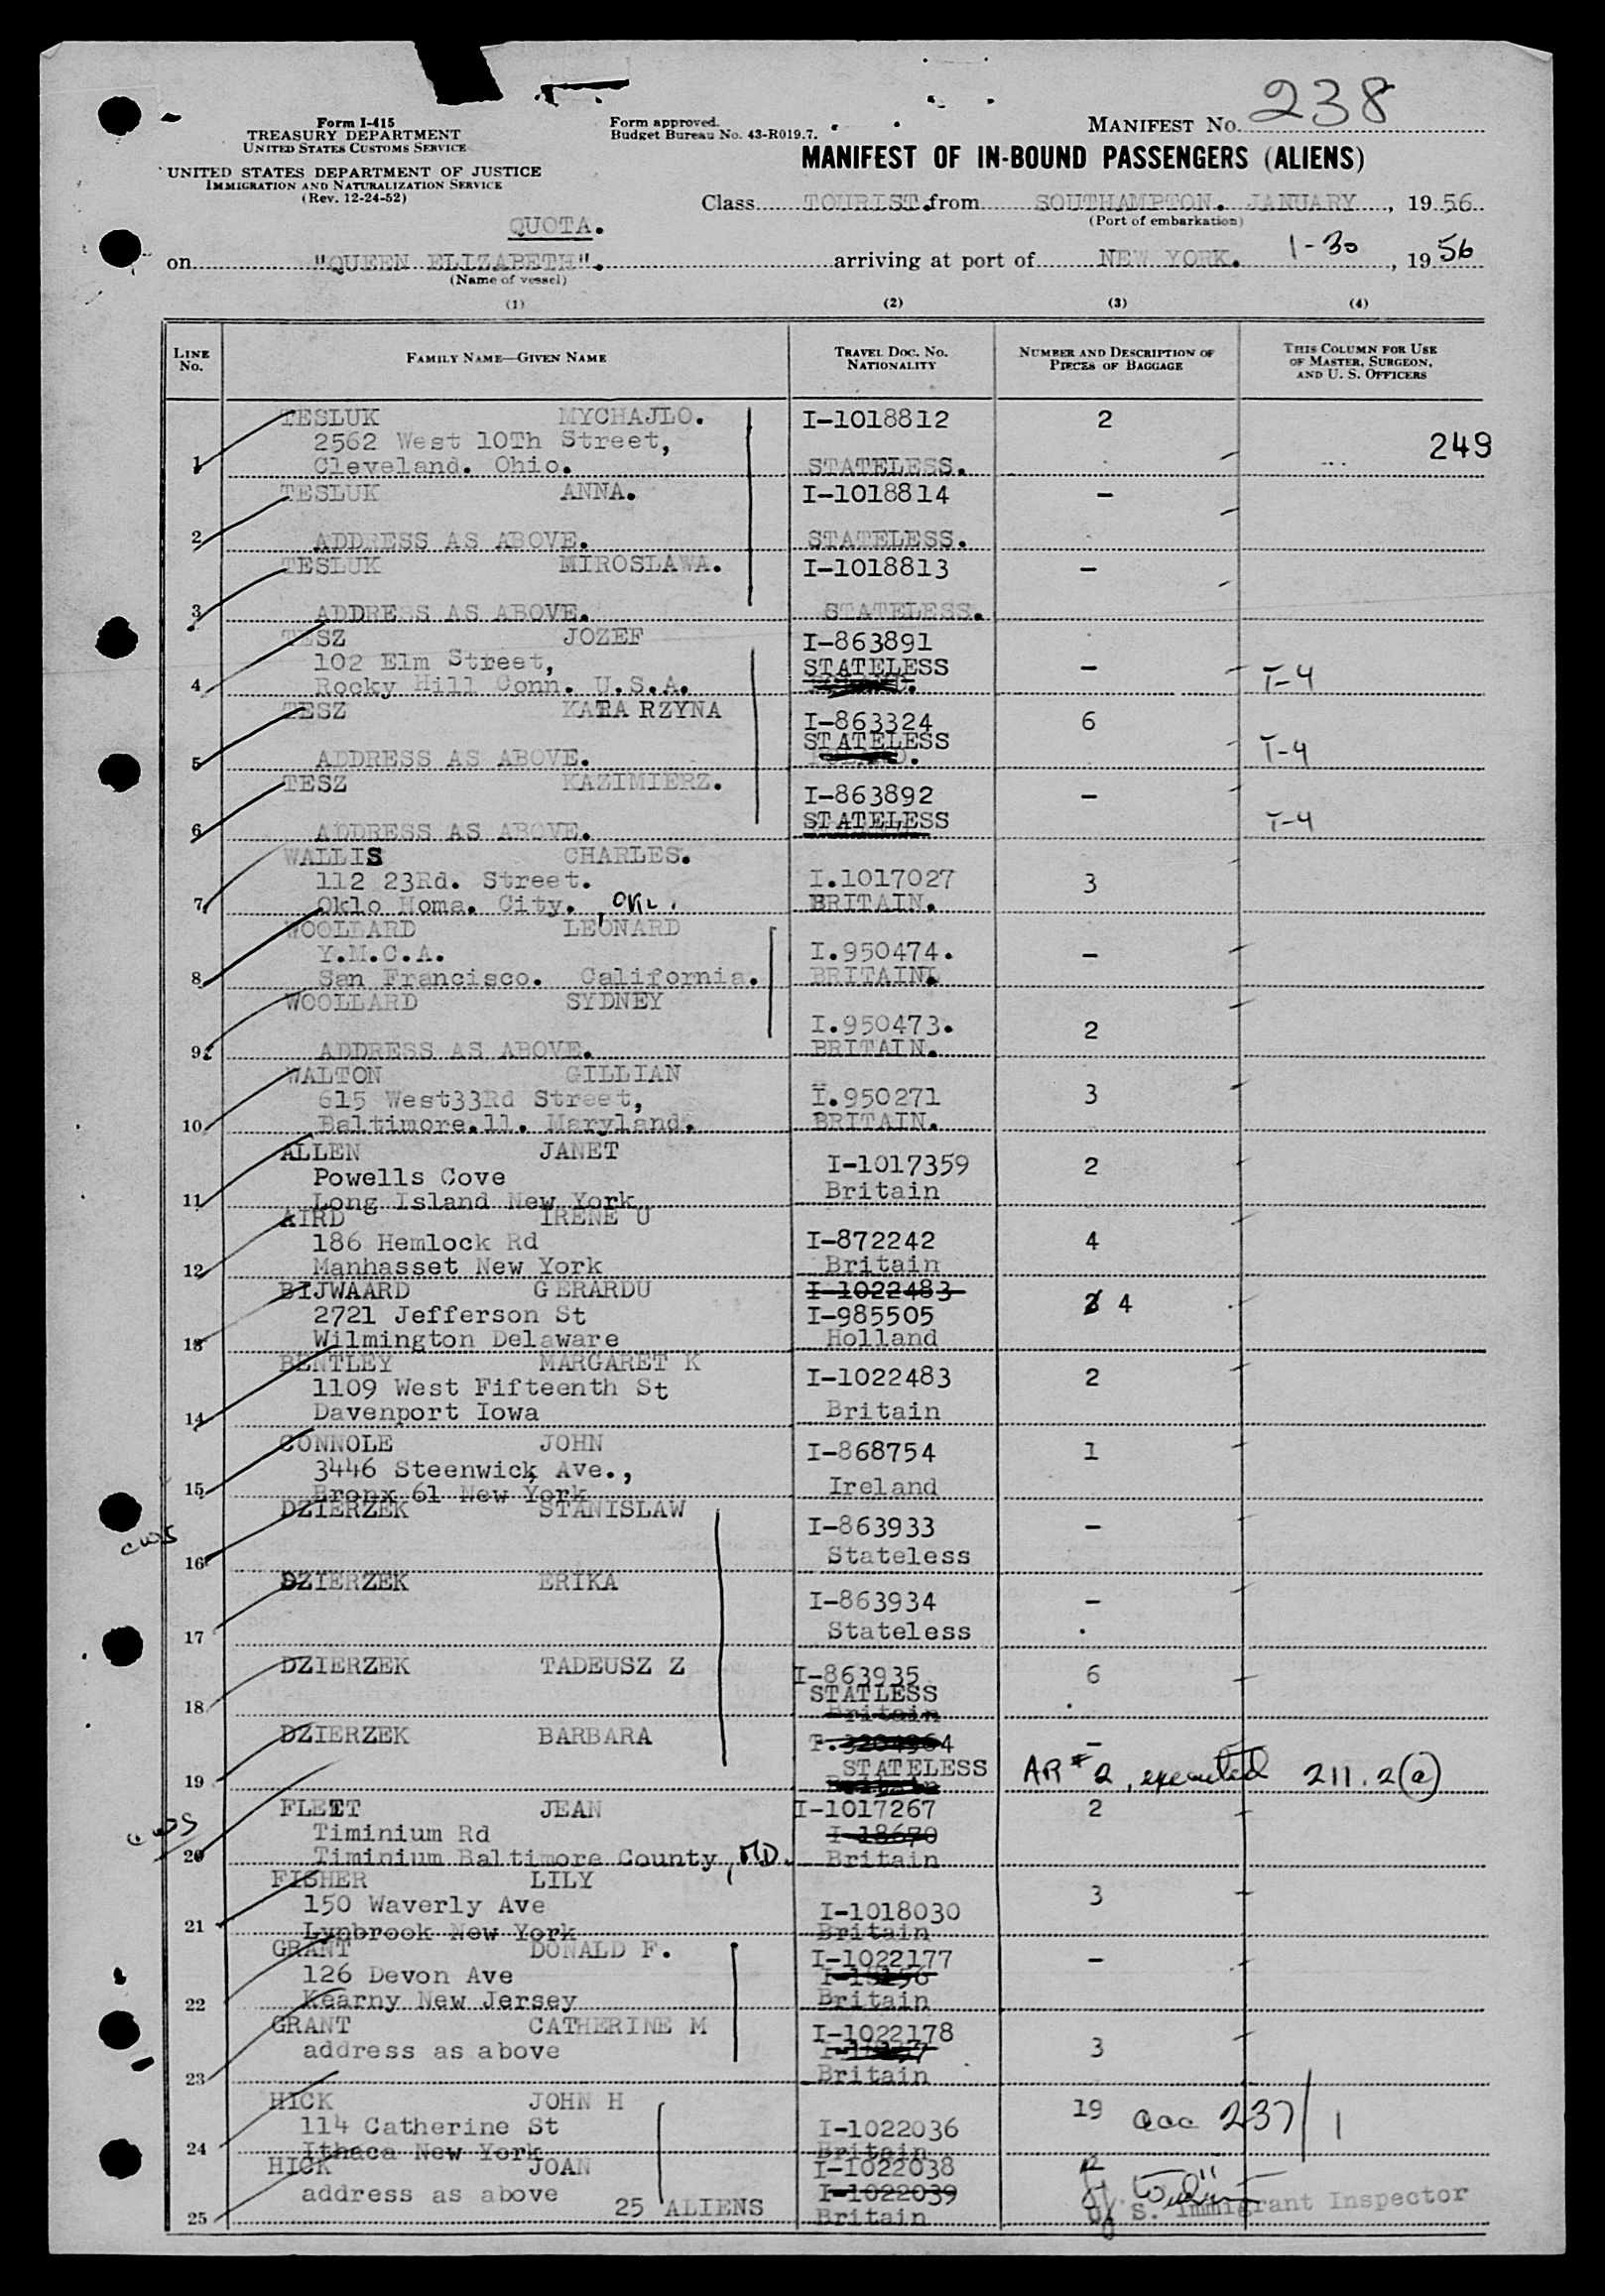 238
Form I-415
TREASURY DEPARTMENT
UNITED STATES CUSTOMS SERVICE
UNITED STATES DEPARTMENT OF JUSTICE
IMMIGRATION AND NATURALIZATION SERVICE
(Rev. 12-24-52)
Form approved.
Budget Bureau No. 43-R019.7.
MANIFEST NO.
MANIFEST OF IN-BOUND PASSENGERS (ALIENS)
Class TOURIST. from SOUTHAMPTON. JANUARY, 1956
(Port of embarkation)
QUOTA.
on "QUEEN ELIZABETH". arriving at port of NEW YORK. 1-30, 1956
(Name of vessel)
(1) (2) (3) (4)
LINE No. FAMILY NAME—GIVEN NAME TRAVEL DOC. NO. NATIONALITY NUMBER AND DESCRIPTION OF PIECES OF BAGGAGE THIS COLUMN FOR USE OF MASTER, SURGEON, AND U. S. OFFICERS
TESLUK MYCHAJLO. I-1018812 2
2562 West 10Th Street, 249
1 Cleveland. Ohio. STATELESS.
TESLUK ANNA. I-1018814 -
2 ADDRESS AS ABOVE. STATELESS.
TESLUK MIROSLAWA. I-1018813 -
3 ADDRESS AS ABOVE. STATELESS.
TESZ JOZEF I-863891
102 Elm Street, STATELESS - T-4
4 Rocky Hill Conn. U.S.A.
TESZ KATA RZYNA I-863324 6
STATELESS T-4
5 ADDRESS AS ABOVE.
TESZ KAZIMIERZ. I-863892 -
6 ADDRESS AS ABOVE. STATELESS T-4
WALLIS CHARLES.
112 23Rd. Street. I.1017027 3
7 Oklo Homa. City. , OKL. BRITAIN.
WOOLLARD LEONARD
Y.M.C.A. I.950474. -
8 San Francisco. California. BRITAIN.
WOOLLARD SYDNEY
I.950473. 2
9 ADDRESS AS ABOVE. BRITAIN.
WALTON GILLIAN
615 West33Rd Street, I.950271 3
10 Baltimore.11. Maryland. BRITAIN.
ALLEN JANET
Powells Cove I-1017359 2
11 Long Island New York Britain
AIRD IRENE U
186 Hemlock Rd I-872242 4
12 Manhasset New York Britain
BIJWAARD GERARDU I-1022483
2721 Jefferson St I-985505 4
13 Wilmington Delaware Holland
BENTLEY MARGARET K
1109 West Fifteenth St I-1022483 2
14 Davenport Iowa Britain
CONNOLE JOHN I-868754 1
3446 Steenwick Ave.,
15 Bronx 61 New York Ireland
DZIERZEK STANISLAW
I-863933 -
cws
16 Stateless
DZIERZEK ERIKA
I-863934 -
17 Stateless
DZIERZEK TADEUSZ Z I-863935 6
STATLESS
18 Britain
DZIERZEK BARBARA -
STATELESS AR #2, executed 211.2(a)
19 Britain
FLETT JEAN I-1017267 2
cws
Timinium Rd I-18670
20 Timinium Baltimore County, MD. Britain
FISHER LILY
150 Waverly Ave I-1018030 3
21 Lynbrook New York Britain
GRANT DONALD F. I-1022177 -
126 Devon Ave
22 Kearny New Jersey Britain
GRANT CATHERINE M I-1022178
address as above 3
23 Britain
HICK JOHN H 19 acc 237/1
114 Catherine St I-1022036
24 Ithaca New York Britain
HICK JOAN I-1022038
address as above I-1022039
25 25 ALIENS Britain
U. S. Immigrant Inspector